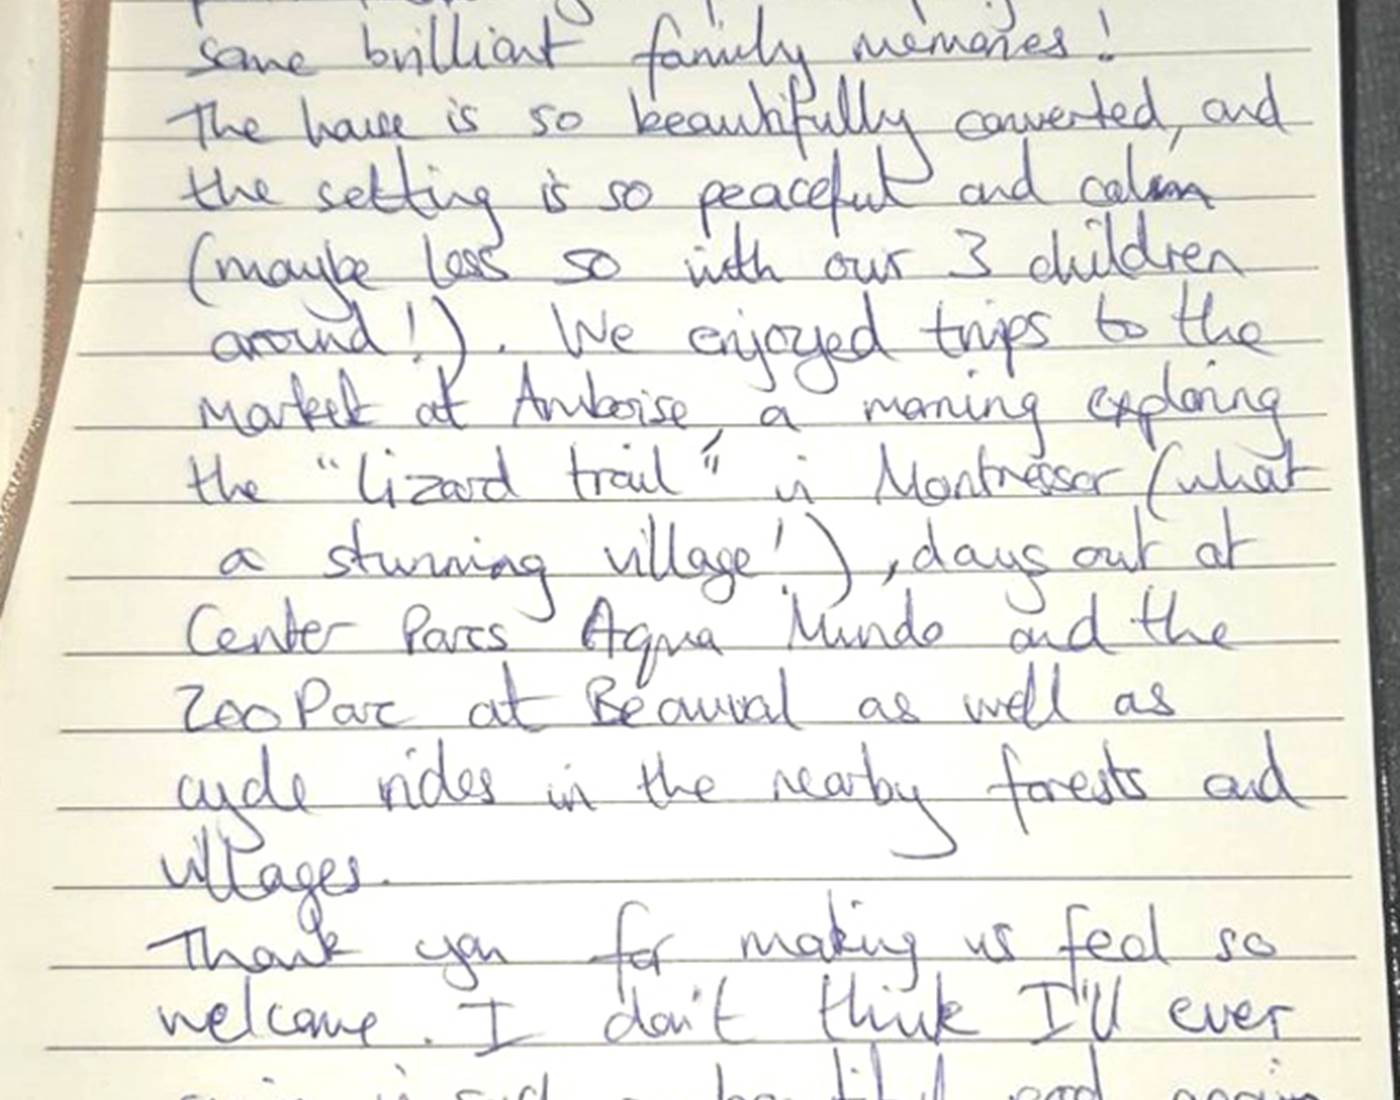 some brilliant family memories!
The house is so beautifully converted, and
the setting is so peaceful and calm
(maybe less so with our 3 children
around!). We enjoyed trips to the
market at Amboise, a morning exploring
the "lizard trail" in Montresor (what
a stunning village!), days out at
Center Parcs Aqua Mundo and the
ZooParc at Beauval as well as
cycle rides in the nearby forests and
villages.
Thank you for making us feel so
welcome. I don't think I'll ever